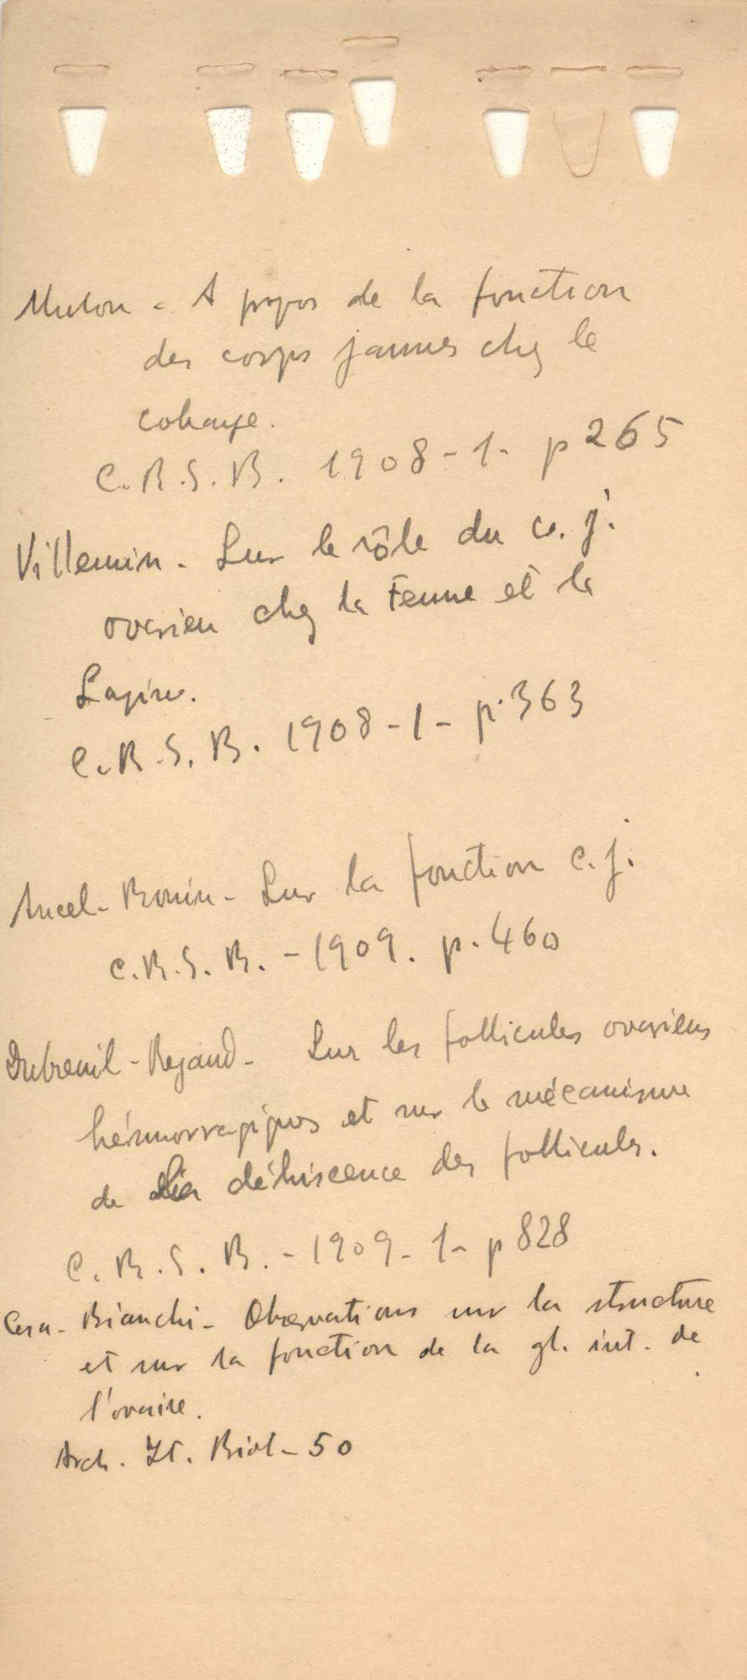 Mulon - A propos de la fonction
des corps jaunes chez le
cobaye.
C.R.S.B. 1908-1- p 265
Villemin - Sur le rôle du c. j.
ovarien chez la Femme et la
Lapine.
C.R.S.B. 1908-1- p.363
Ancel-Bouin- Sur la fonction c.j.
C.R.S.B. -1909. p.460
Dubreuil-Regaud- Sur les follicules ovariens
hémorragiques et sur le mécanisme
de la déhiscence des follicules.
C.R.S.B. -1909-1- p 828
Cesa-Bianchi- Observations sur la structure
et sur la fonction de la gl. int. de
l'ovaire.
Arch. It. Biol-50